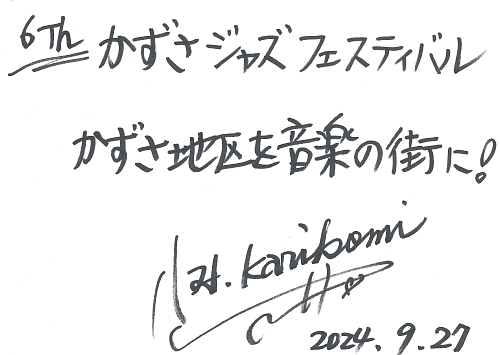 6Th かずさジャズフェスティバル
かずさ地区を音楽の街に!
H. Karikomi
2024.9.27